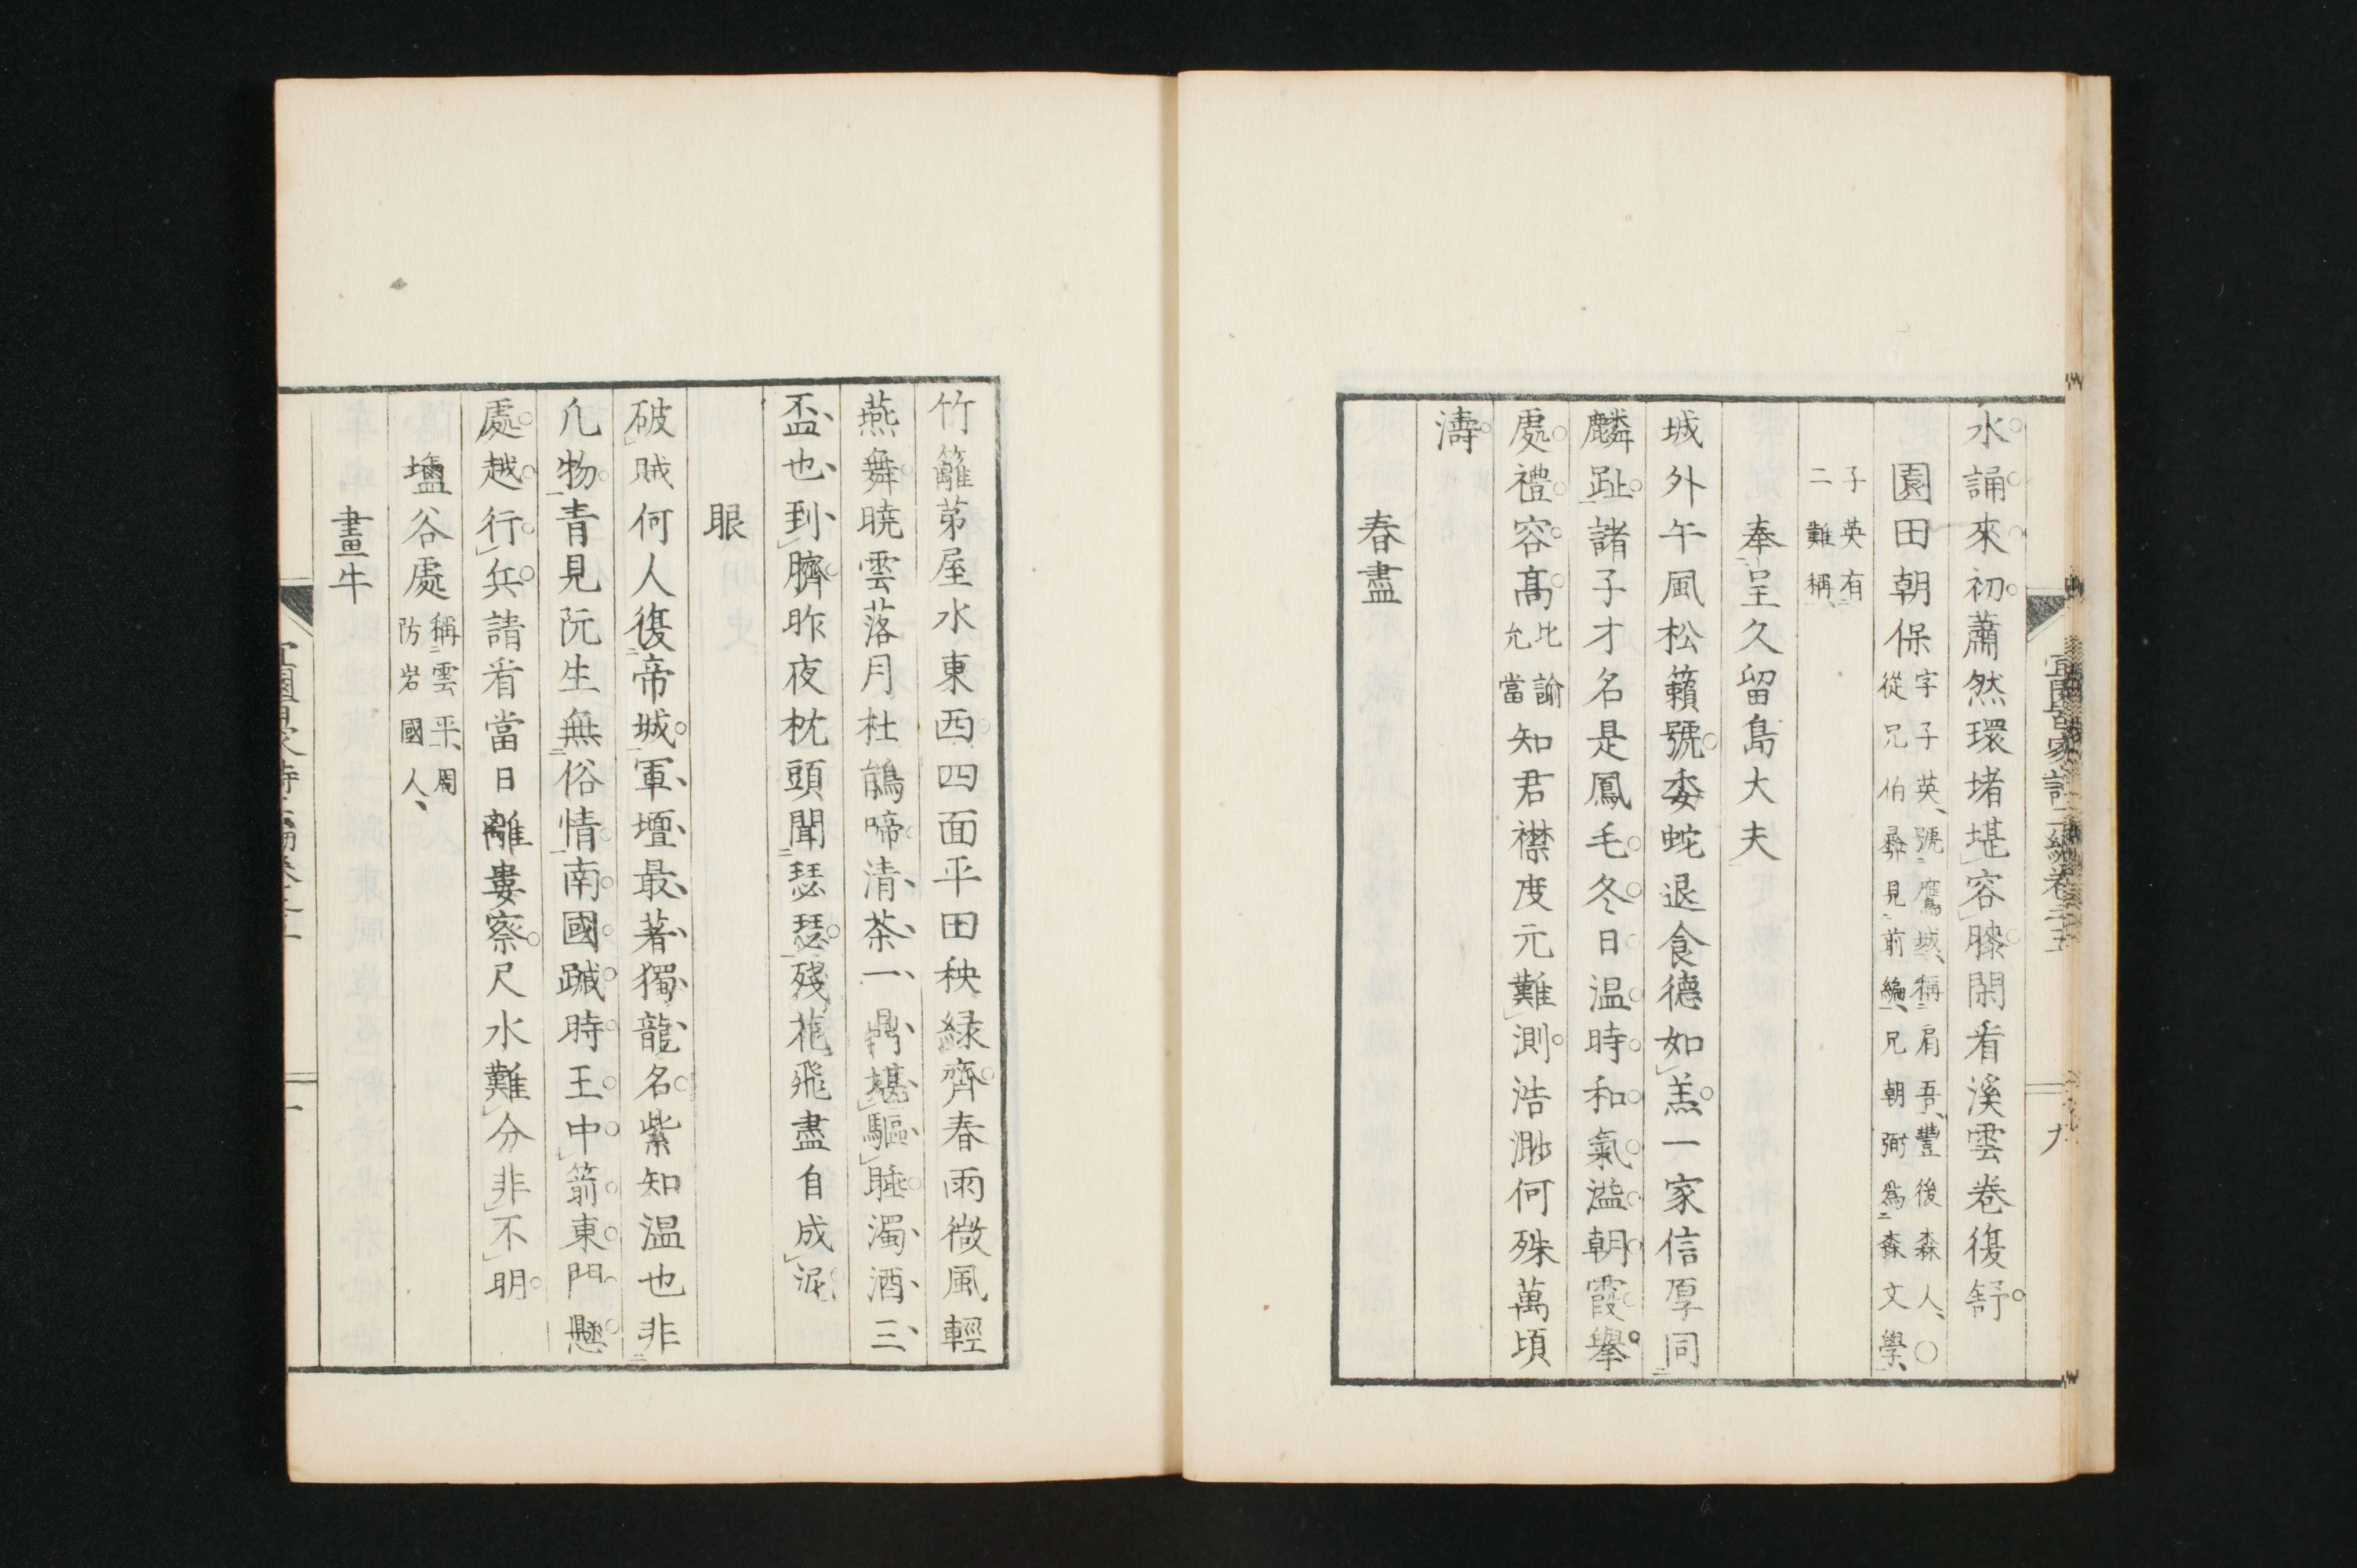 水誦來初蕭然環堵堪容膝閑看溪雲卷復舒
園田朝保字子英、號鷹城、稱肩吾、豐後森人、○
從兄伯彝見前編、兄朝弼爲森文學、
子英有
二難稱、
奉呈久留島大夫
城外午風松籟號委蛇退食德如羔一家信厚同
麟趾諸子才名是鳳毛冬日温時和氣溢朝霞擧
處禮容高比諭
允當知君襟度元難測浩渺何殊萬頃
濤
春盡
竹籬茅屋水東西四面平田秧緑齊春雨微風輕
燕舞曉雲落月杜鵑啼清茶一鼎堪驅睡濁酒三
盃也到臍昨夜枕頭聞瑟瑟殘花飛盡自成泥
眼
破賊何人復帝城軍壇最著獨龍名紫知温也非
凡物青見阮生無俗情南國䠞時王中箭東門懸
處越行兵請看當日離婁察尺水難分非不明
塩谷處稱雲平、周
防岩國人、
畫牛